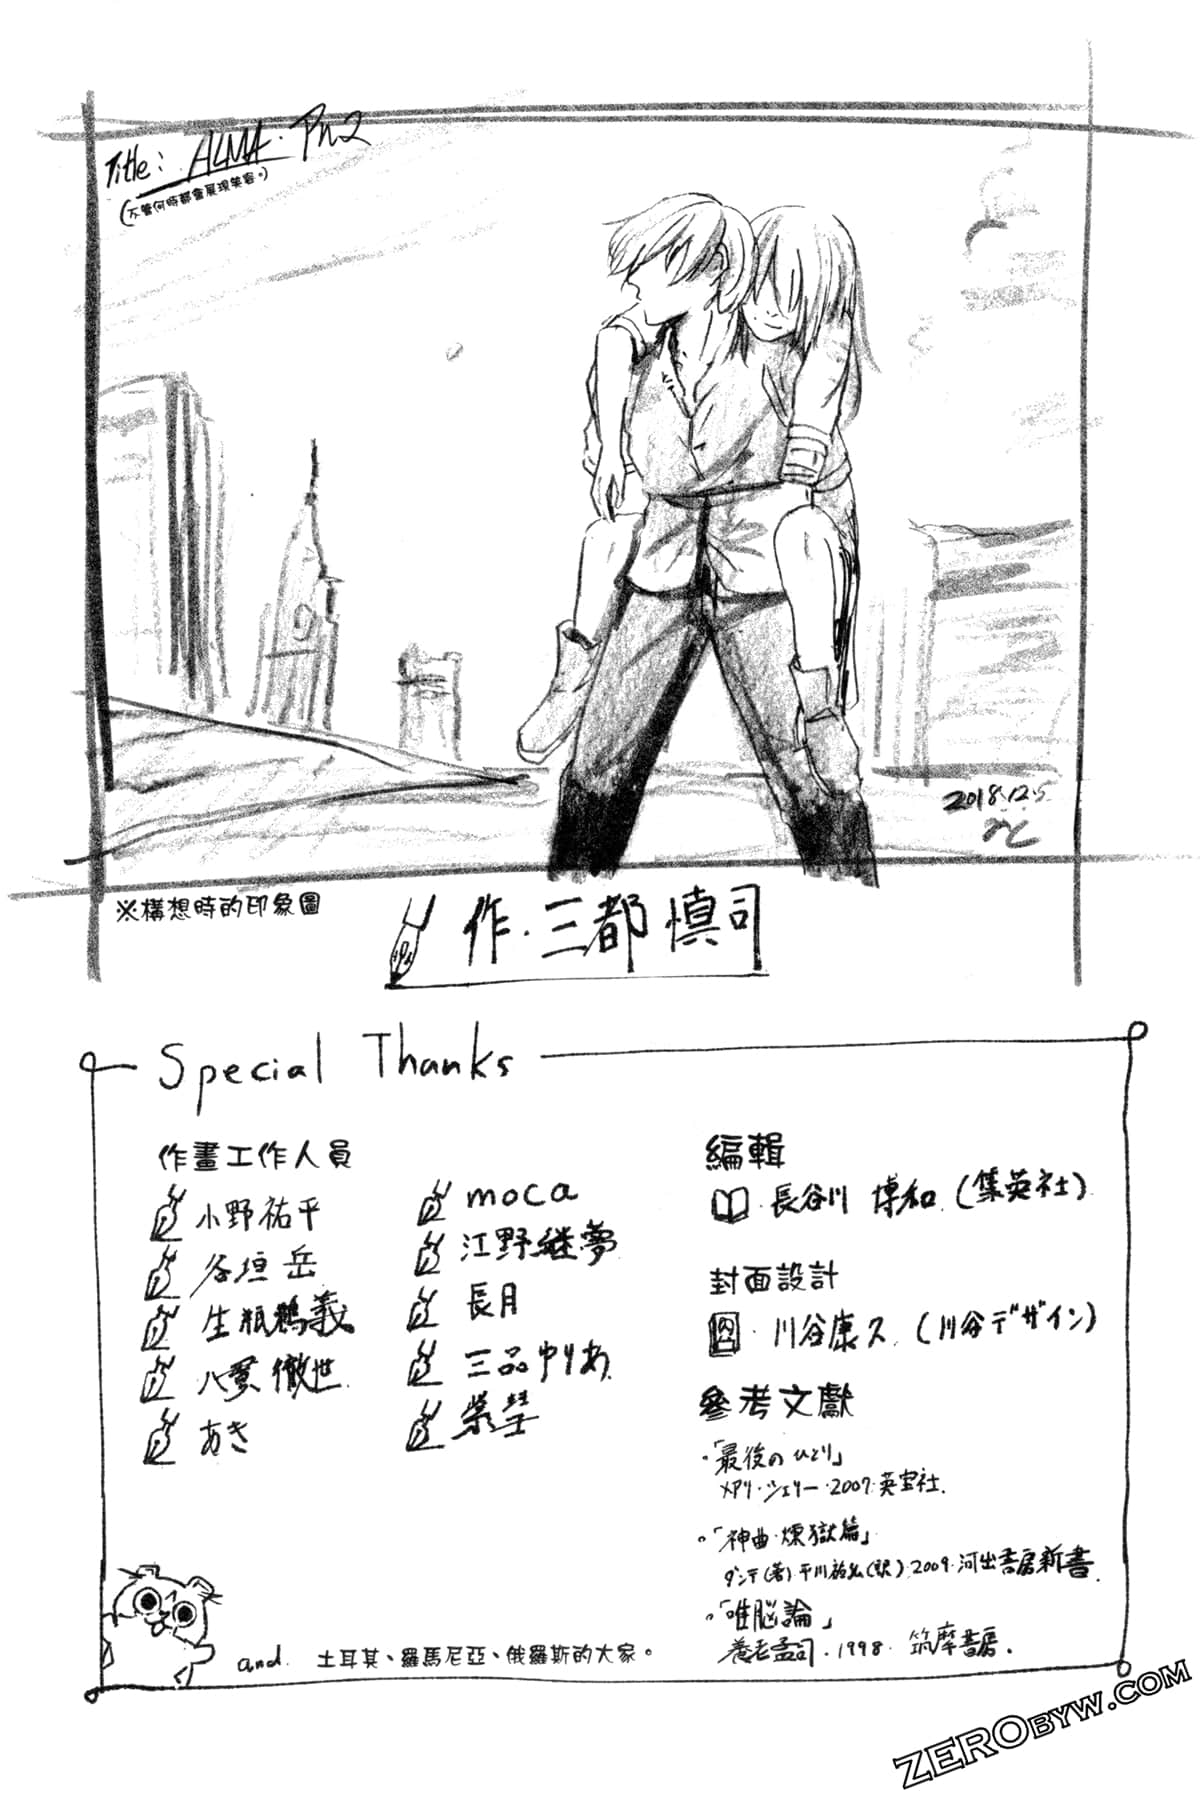 Title: ALMA. Pn2
(不管何時都會展現笑容。)
2018.12.5
※構想時的印象圖
作・三都慎司
Special Thanks
作畫工作人員
小野祐平
谷垣 岳
生瓶鵜義
八景 徹世
あき
moca
江野継夢
長月
三品ゆりあ
編輯
・長谷川 博和.(集英社)
封面設計
・川谷康久.(川谷デザイン)
參考文獻
・「最後のひとり」
メアリ・シェリー・2007・英宝社.
・「神曲・煉獄篇」
ダンテ(著)・平川祐弘(訳)・2009・河出書房新書.
・「唯脳論」
養老孟司・1998・筑摩書房.
and. 土耳其、羅馬尼亞、俄羅斯的大家。
ZEROBYW.COM